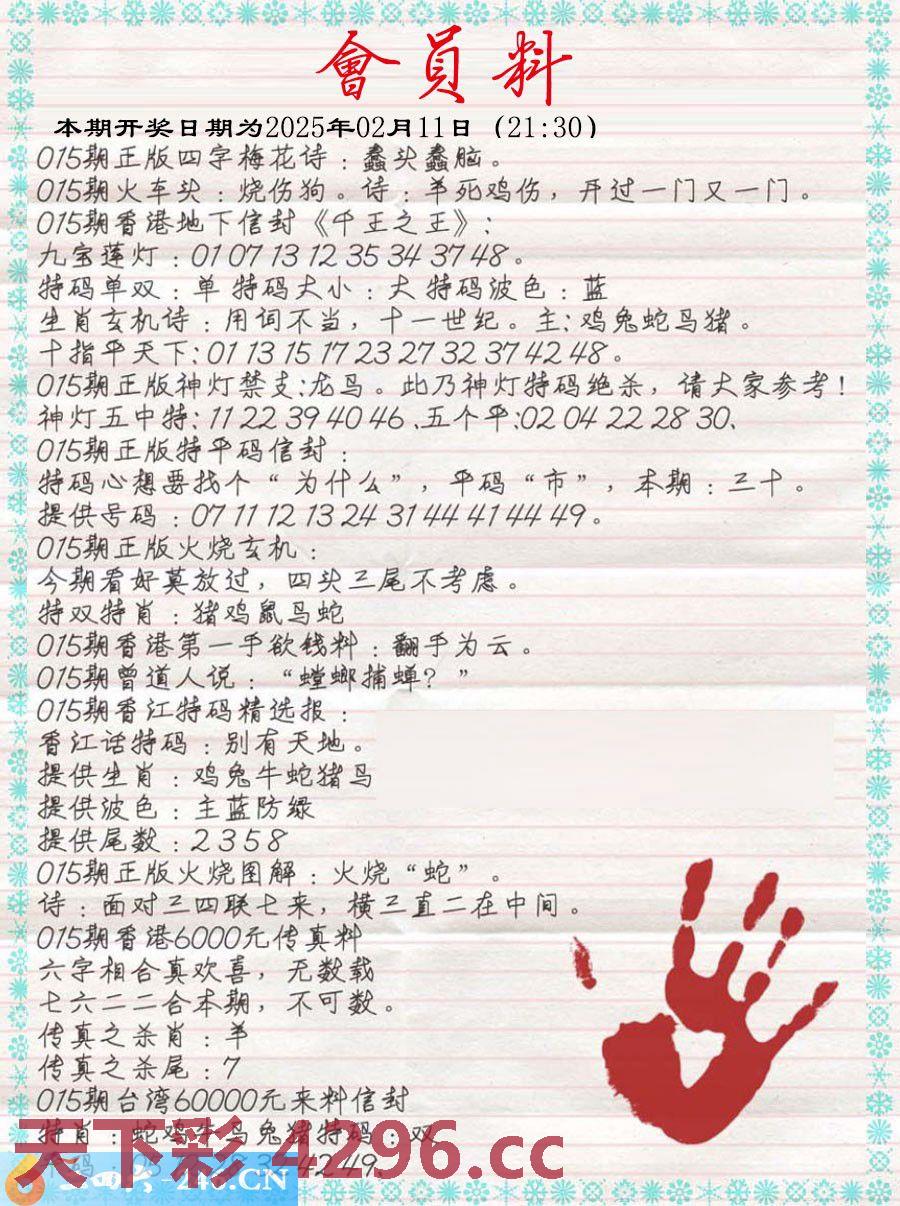 會員料
本期开奖日期为2025年02月11日（21:30）
015期正版四字梅花诗：蠢头蠢脑。
015期火车头：烧伤狗。诗：羊死鸡伤，开过一门又一门。
015期香港地下信封《千王之王》:
九宝莲灯：01 07 13 12 35 34 37 48。
特码单双：单 特码大小：大 特码波色：蓝
生肖玄机诗：用词不当，十一世纪。主:鸡兔蛇马猪。
十指平天下:01 13 15 17 23 27 32 37 42 48。
015期正版神灯禁支:龙马。此乃神灯特码绝杀，请大家参考!
神灯五中特:11 22 39 40 46、五个平:02 04 22 28 30、
015期正版特平码信封：
特码心想要找个“为什么”，平码“市”，本期：三十。
提供号码：07 11 12 13 24 31 44 41 44 49。
015期正版火烧玄机：
今期看好莫放过，四头三尾不考虑。
特双特肖：猪鸡鼠马蛇
015期香港第一手欲钱料：翻手为云。
015期曾道人说：“螳螂捕蝉？”
015期香江特码精选报：
香江话特码：别有天地。
提供生肖：鸡兔牛蛇猪马
提供波色：主蓝防绿
提供尾数：2 3 5 8
015期正版火烧图解：火烧“蛇”。
诗：面对三四联七来，横三直二在中间。
015期香港6000元传真料
六字相合真欢喜，无数载
七六二二合本期，不可数。
传真之杀肖：羊
传真之杀尾：7
015期台湾60000元来料信封
特肖：蛇鸡牛马兔猪特码：双
天下彩 4296.cc
42 49、
246.CN